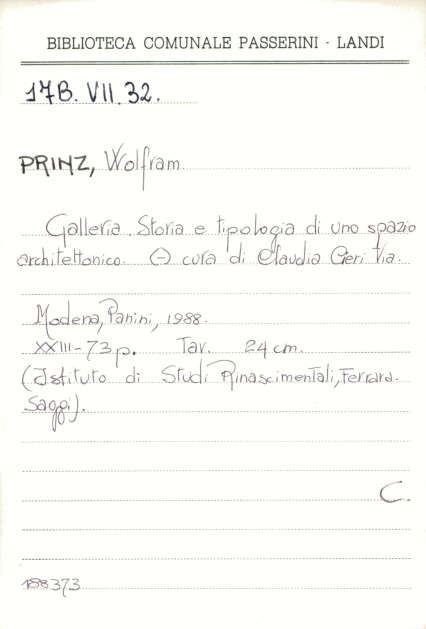 BIBLIOTECA COMUNALE PASSERINI - LANDI
17B. VII. 32.
PRINZ, Wolfram.
Galleria. Storia e tipologia di uno spazio
architettonico. (-) cura di Claudia Cieri Via.
Modena, Panini, 1988.
XXIII-73 p. Tav. 24 cm.
(Istituto di Studi Rinascimentali, Ferrara.
Saggi).
C.
188373